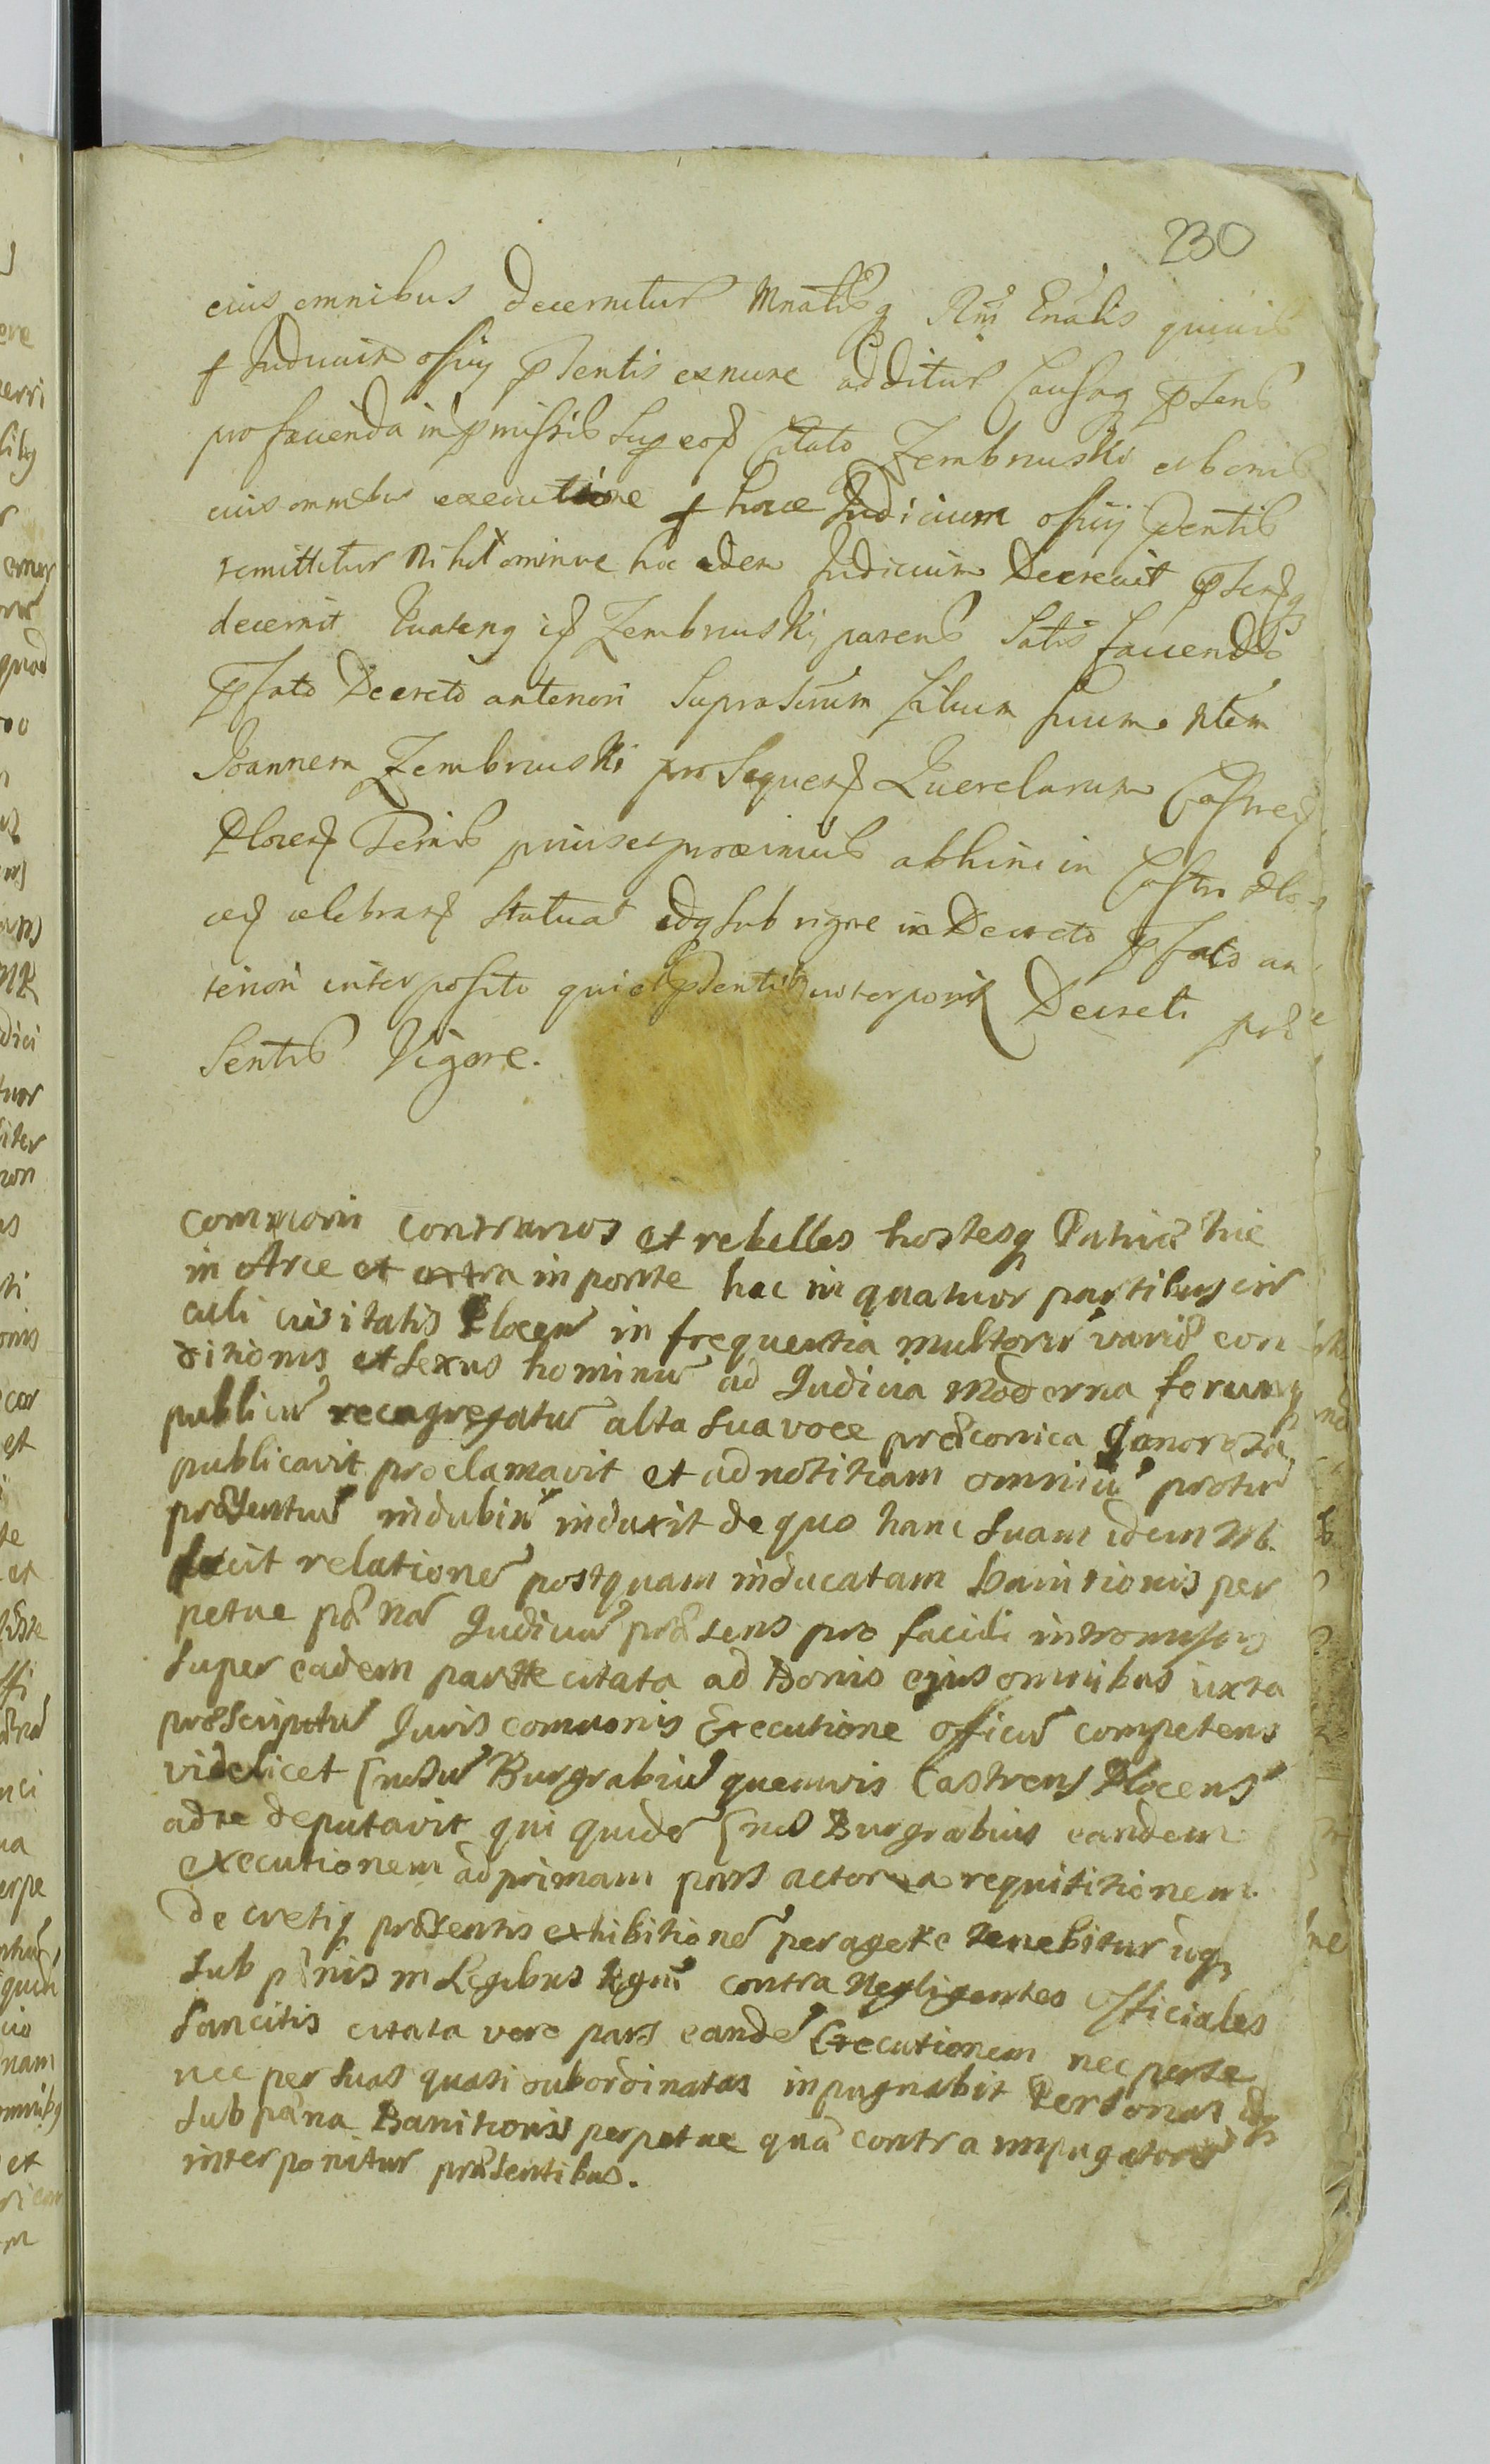 230
eius omnibus decernitur Mnatisq Rm Gnalis
Iudicium offiy pſentis exnunc additur Causaq pſens
pro facienda in pmissis Sup eosd Citato Zembrzuski ex bonis
eius omnibus executione p hocce Iudicium offiy pſentis
remittitur Nihilominus hoc idem Iudicium Decrevit
decernit Quatenq Zembrzuski parens Satis faciendo
pſato Decreto anteriori Suprascrium filium suum
Joannem Zembrzuski pro Querelarum Castren
Plocen Termis prius et proximius abhinc in Castro Plo
cen celebran Statuat idq sub rigore in Decreto pſato an
teriori interposito qui et pſentis Decreti prae
Sentis Vigore.
contrarios et rebelles hostesq Patriae hic
in Arce et extra in ponte hac in quatuor partibus cir
culi civitatis Plocen in frequentia multoru variae con
ditionis et Sexus hominu ad Iudicia Moderna forumq
publicu recagregatu alta sua voce praeconica
publicavit proclamavit et ad notitiam omniu
praesentiu indubiu induxit de quo hanc Suam idem M.
fecit relatione postquam inducatam banitionis per
petue paena Iudiciu praesens pro facili
Super eadem partte citata ad Bonis ejus omnibus iuxta
praescriptu Iuris comunis Executione officiu competens
videlicet Burgrabiu quemvis Castrens Plocens
ad te deputavit qui quide Burgrabius eandem
executionem ad primam pars actorea requititionem
decretiq praesentis exhibitione peragere tenebitur
Sub paenis in Legibus Regni contra Negligentes officiales
Sancitis citata vero pars eande Executionem nec per se
nec per suas quasi subordinatas inpugnabit Personas idq
sub paena Banitionis perpetue qua contra
interponitur praesentibus.